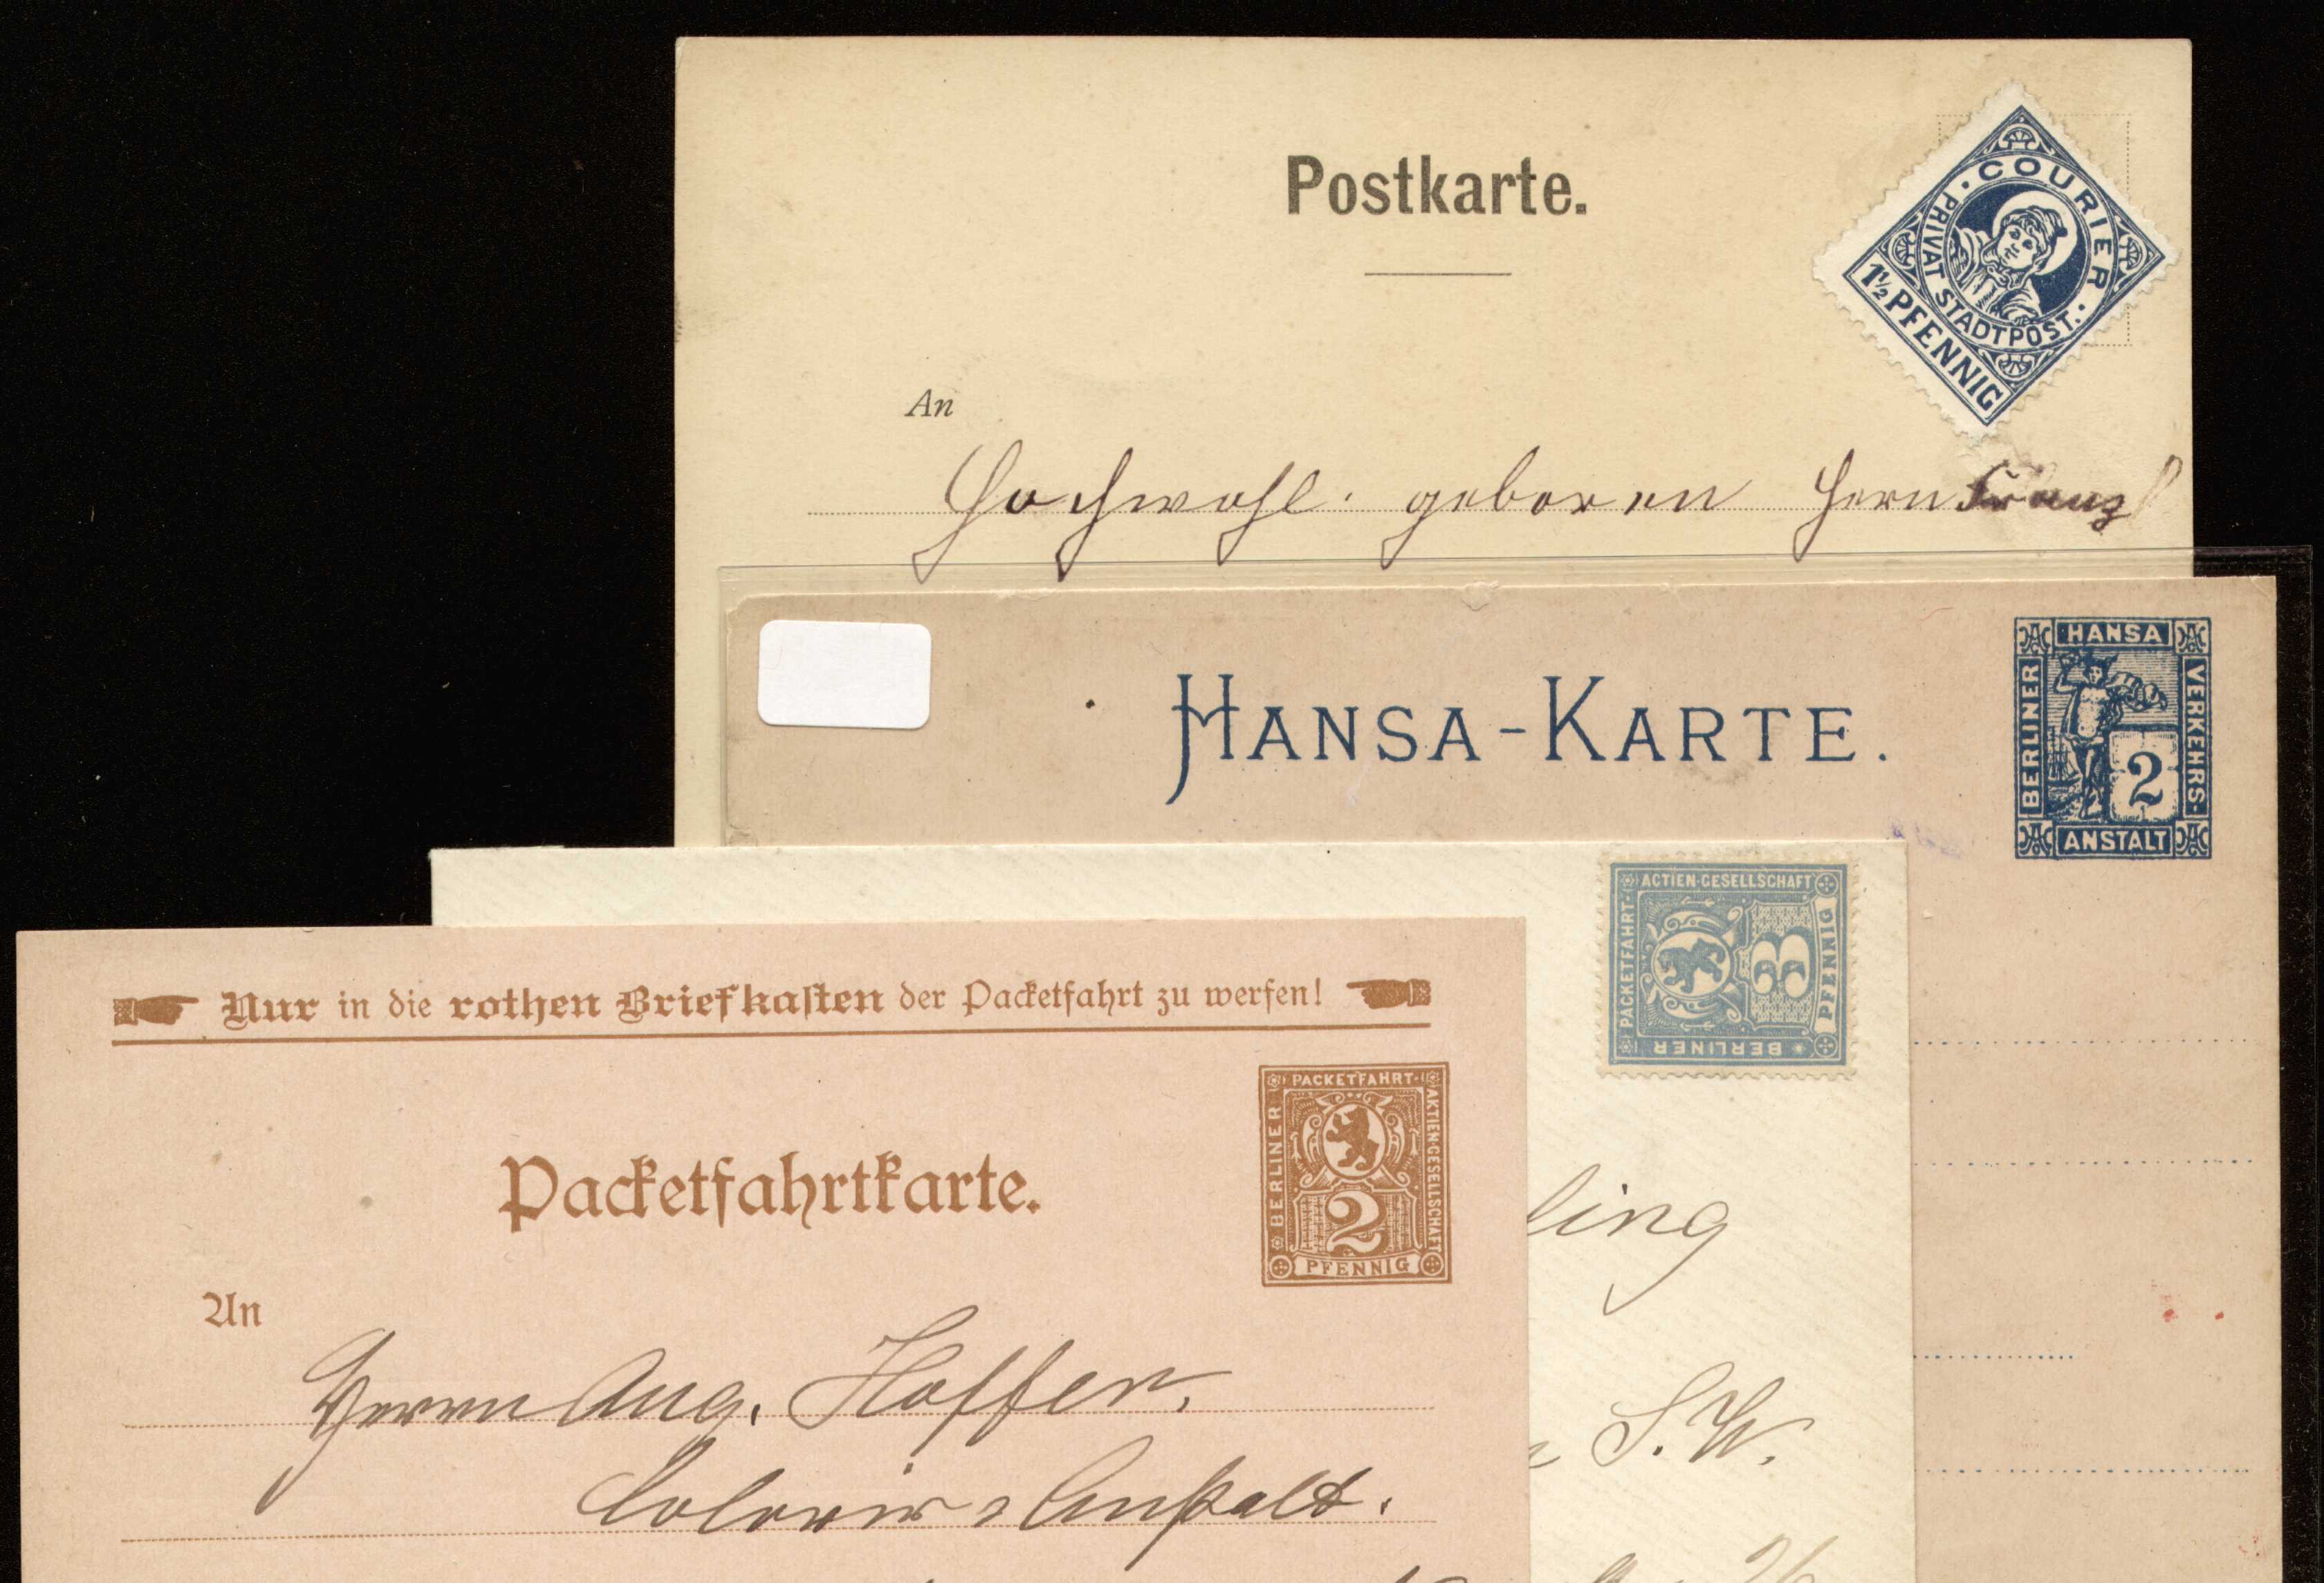 Postkarte.
COURIER
PRIVAT STADTPOST.
1½ PFENNIG
An
Hochwohl. geboren Herrn Franz
HANSA-KARTE.
HANSA
BERLINER
VERKEHRS-
2
ANSTALT
ACTIEN-GESELLSCHAFT
PACKETFAHRT-
3
PFENNIG
BERLINER
Nur in die rothen Briefkasten der Packetfahrt zu werfen!
Packetfahrtkarte.
PACKETFAHRT-
BERLINER
AKTIEN-GESELLSCHAFT
2
PFENNIG
ling
An
Herrn Aug. Hoffer.
S.W.
Colorir Anstalt.